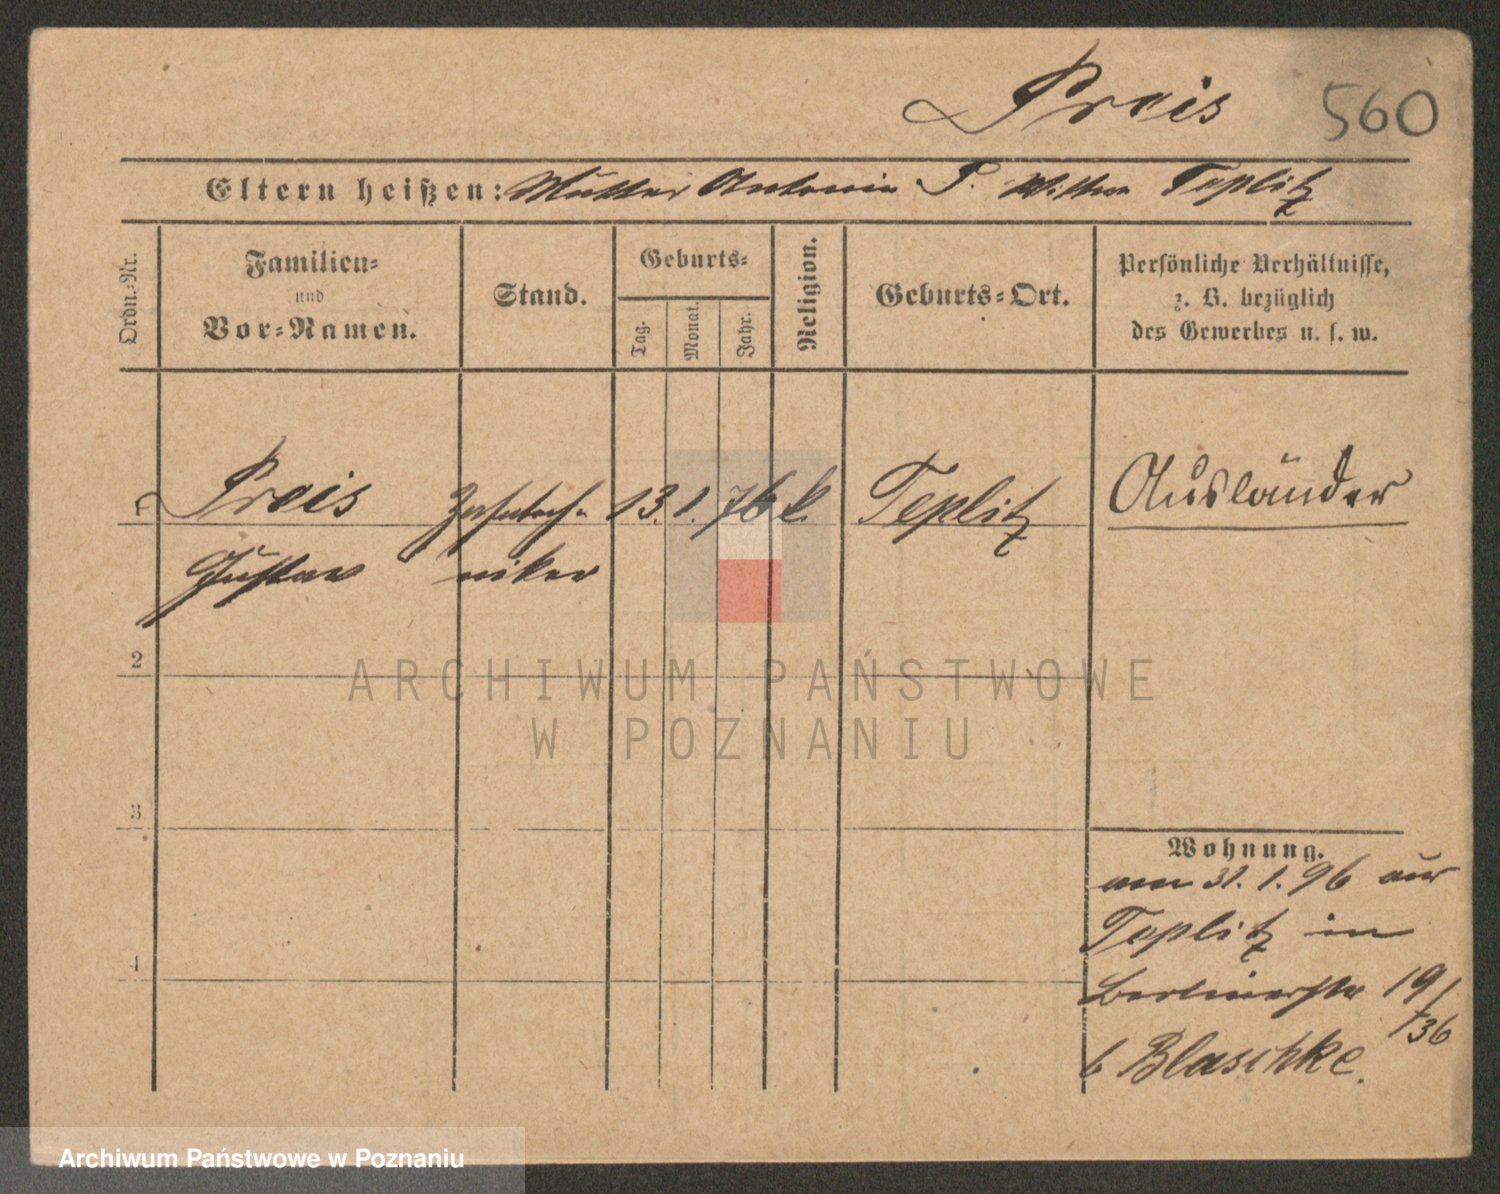 Preis 560
Eltern heißen: Mutter Antonie P. Wittwe Teplitz
Ordn.-Nr.
Familien-
und
Vor-Namen.
Stand.
Geburts-
Tag.
Monat.
Jahr.
Religion.
Geburts-Ort.
Persönliche Verhältnisse,
z. B. bezüglich
des Gewerbes u. s. w.
Preis Zahntech- 13. 1. 76 k. Teplitz Ausländer
Gustav niker
2
ARCHIWUM PAŃSTWOWE
W POZNANIU
3
Wohnung.
am 31. 1. 96 aus
Teplitz in
4
Berlinerstr 19/
136
b Blaschke.
Archiwum Państwowe w Poznaniu